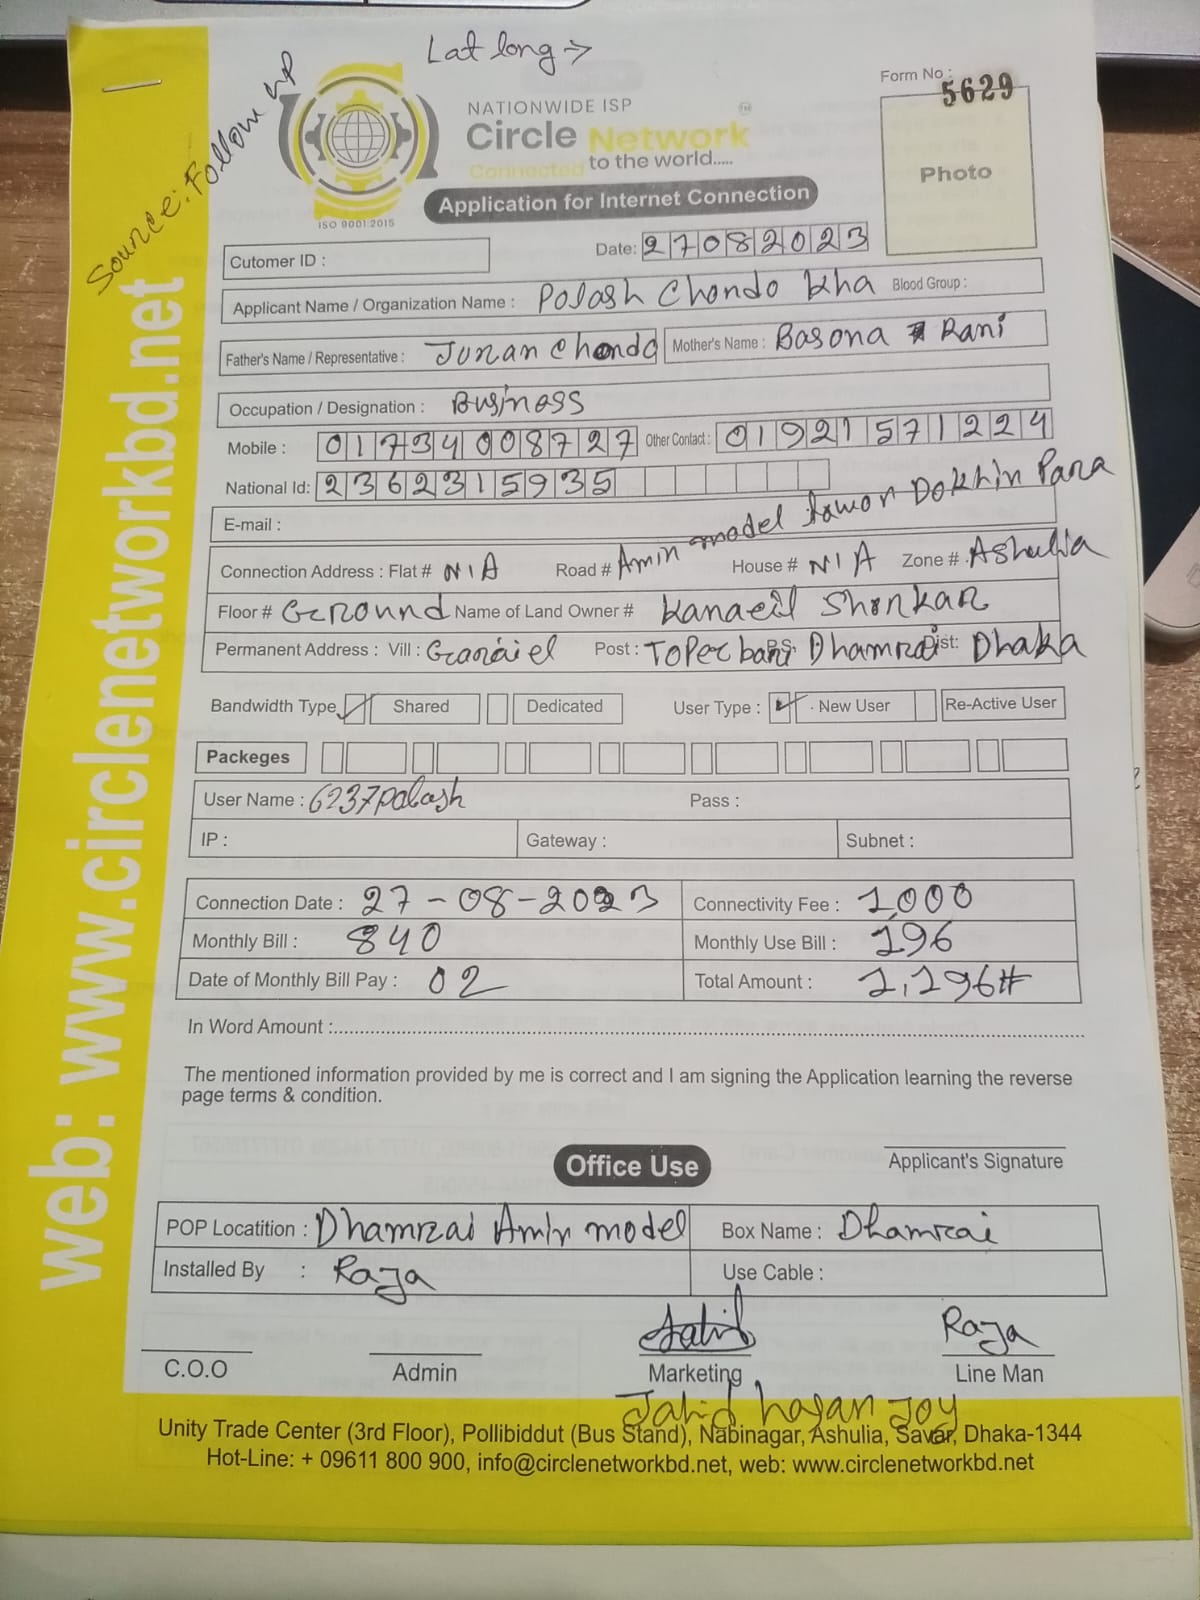 Lat long →
Source: Follow up
Form No : 5629
NATIONWIDE ISP
Circle Network
Connected to the world.....
ISO 9001:2015
Photo
Application for Internet Connection
Cutomer ID :
Date: 27082023
Applicant Name / Organization Name : Polash Chondo Kha Blood Group :
Father's Name / Representative : Juran Chondo Mother's Name : Basona Rani
Occupation / Designation : Business
Mobile : 01734008727 Other Contact : 01921571224
National Id: 2362315935
E-mail :
Connection Address : Flat # N/A Road # Amin model tower Dokhin Para House # N/A Zone # Ashulia
Floor # Ground Name of Land Owner # Kanaeil Shonkar
Permanent Address : Vill : Post : P.S: Dhamrai Dist: Dhaka
Bandwidth Type Shared Dedicated User Type : New User Re-Active User
Packeges
User Name : 6237polash Pass :
IP : Gateway : Subnet :
Connection Date : 27-08-2023 Connectivity Fee : 1,000
Monthly Bill : 840 Monthly Use Bill : 196
Date of Monthly Bill Pay : 02 Total Amount : 1,196#
In Word Amount :
The mentioned information provided by me is correct and I am signing the Application learning the reverse
page terms & condition.
Office Use
Applicant's Signature
POP Locatition : Dhamrai Amin model Box Name : Dhamrai
Installed By : Raja Use Cable :
Jahid Raja
C.O.O Admin Marketing Line Man
Jahid hasan Joy
Unity Trade Center (3rd Floor), Pollibiddut (Bus Stand), Nabinagar, Ashulia, Savar, Dhaka-1344
Hot-Line: + 09611 800 900, info@circlenetworkbd.net, web: www.circlenetworkbd.net
web: www.circlenetworkbd.net